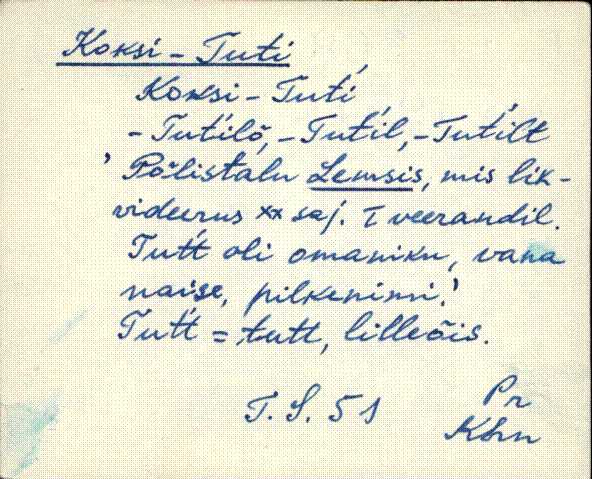 Koksi - Tuti
Koksi - Tut́i
- Tut́ilõ, - Tut́il, - Tut́ilt
' Põlistalu Lemsis, mis lik-
videerus XX saj. I veerandil.
Tut́t oli omaniku, vana
naise, pilkenimi.'
Tut́t = tutt, lilleõis.
T. S. 51
Pr
Khn